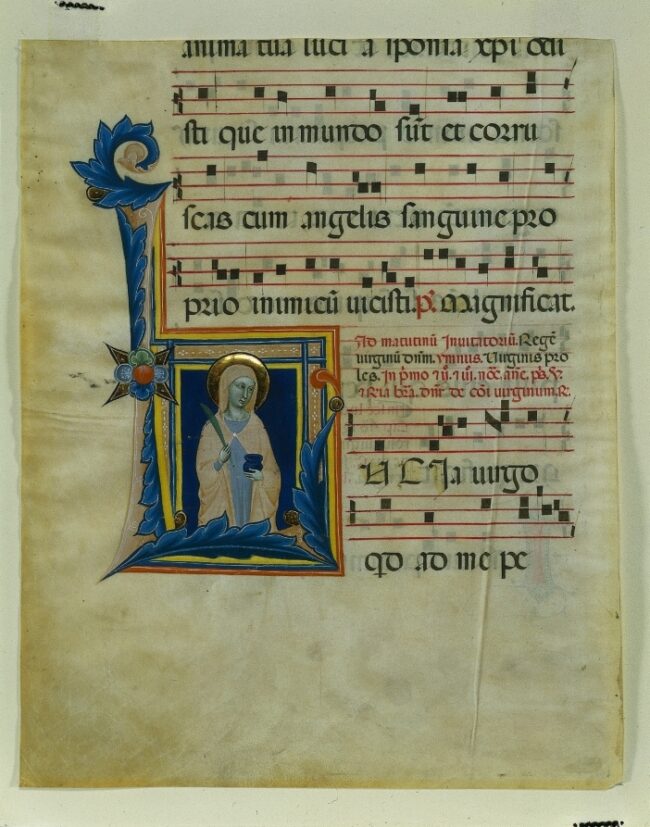 anima tua luci a sponsa xpi odi
sti que in mundo sūt et corru
scas cum angelis sanguine pro
prio inimicū uicisti. p̄. Magnificat.
Ad matutinū Inuitatoriū. Regē
uirginū dnm. ymnus. Uirginis pro
les. In pͥmo ⁊ ij. ⁊ iij. noc̄. anē. ps. v̄.
dnr̄ de cōi uirginum. R.
LU C J a uirgo
qd ad me pe